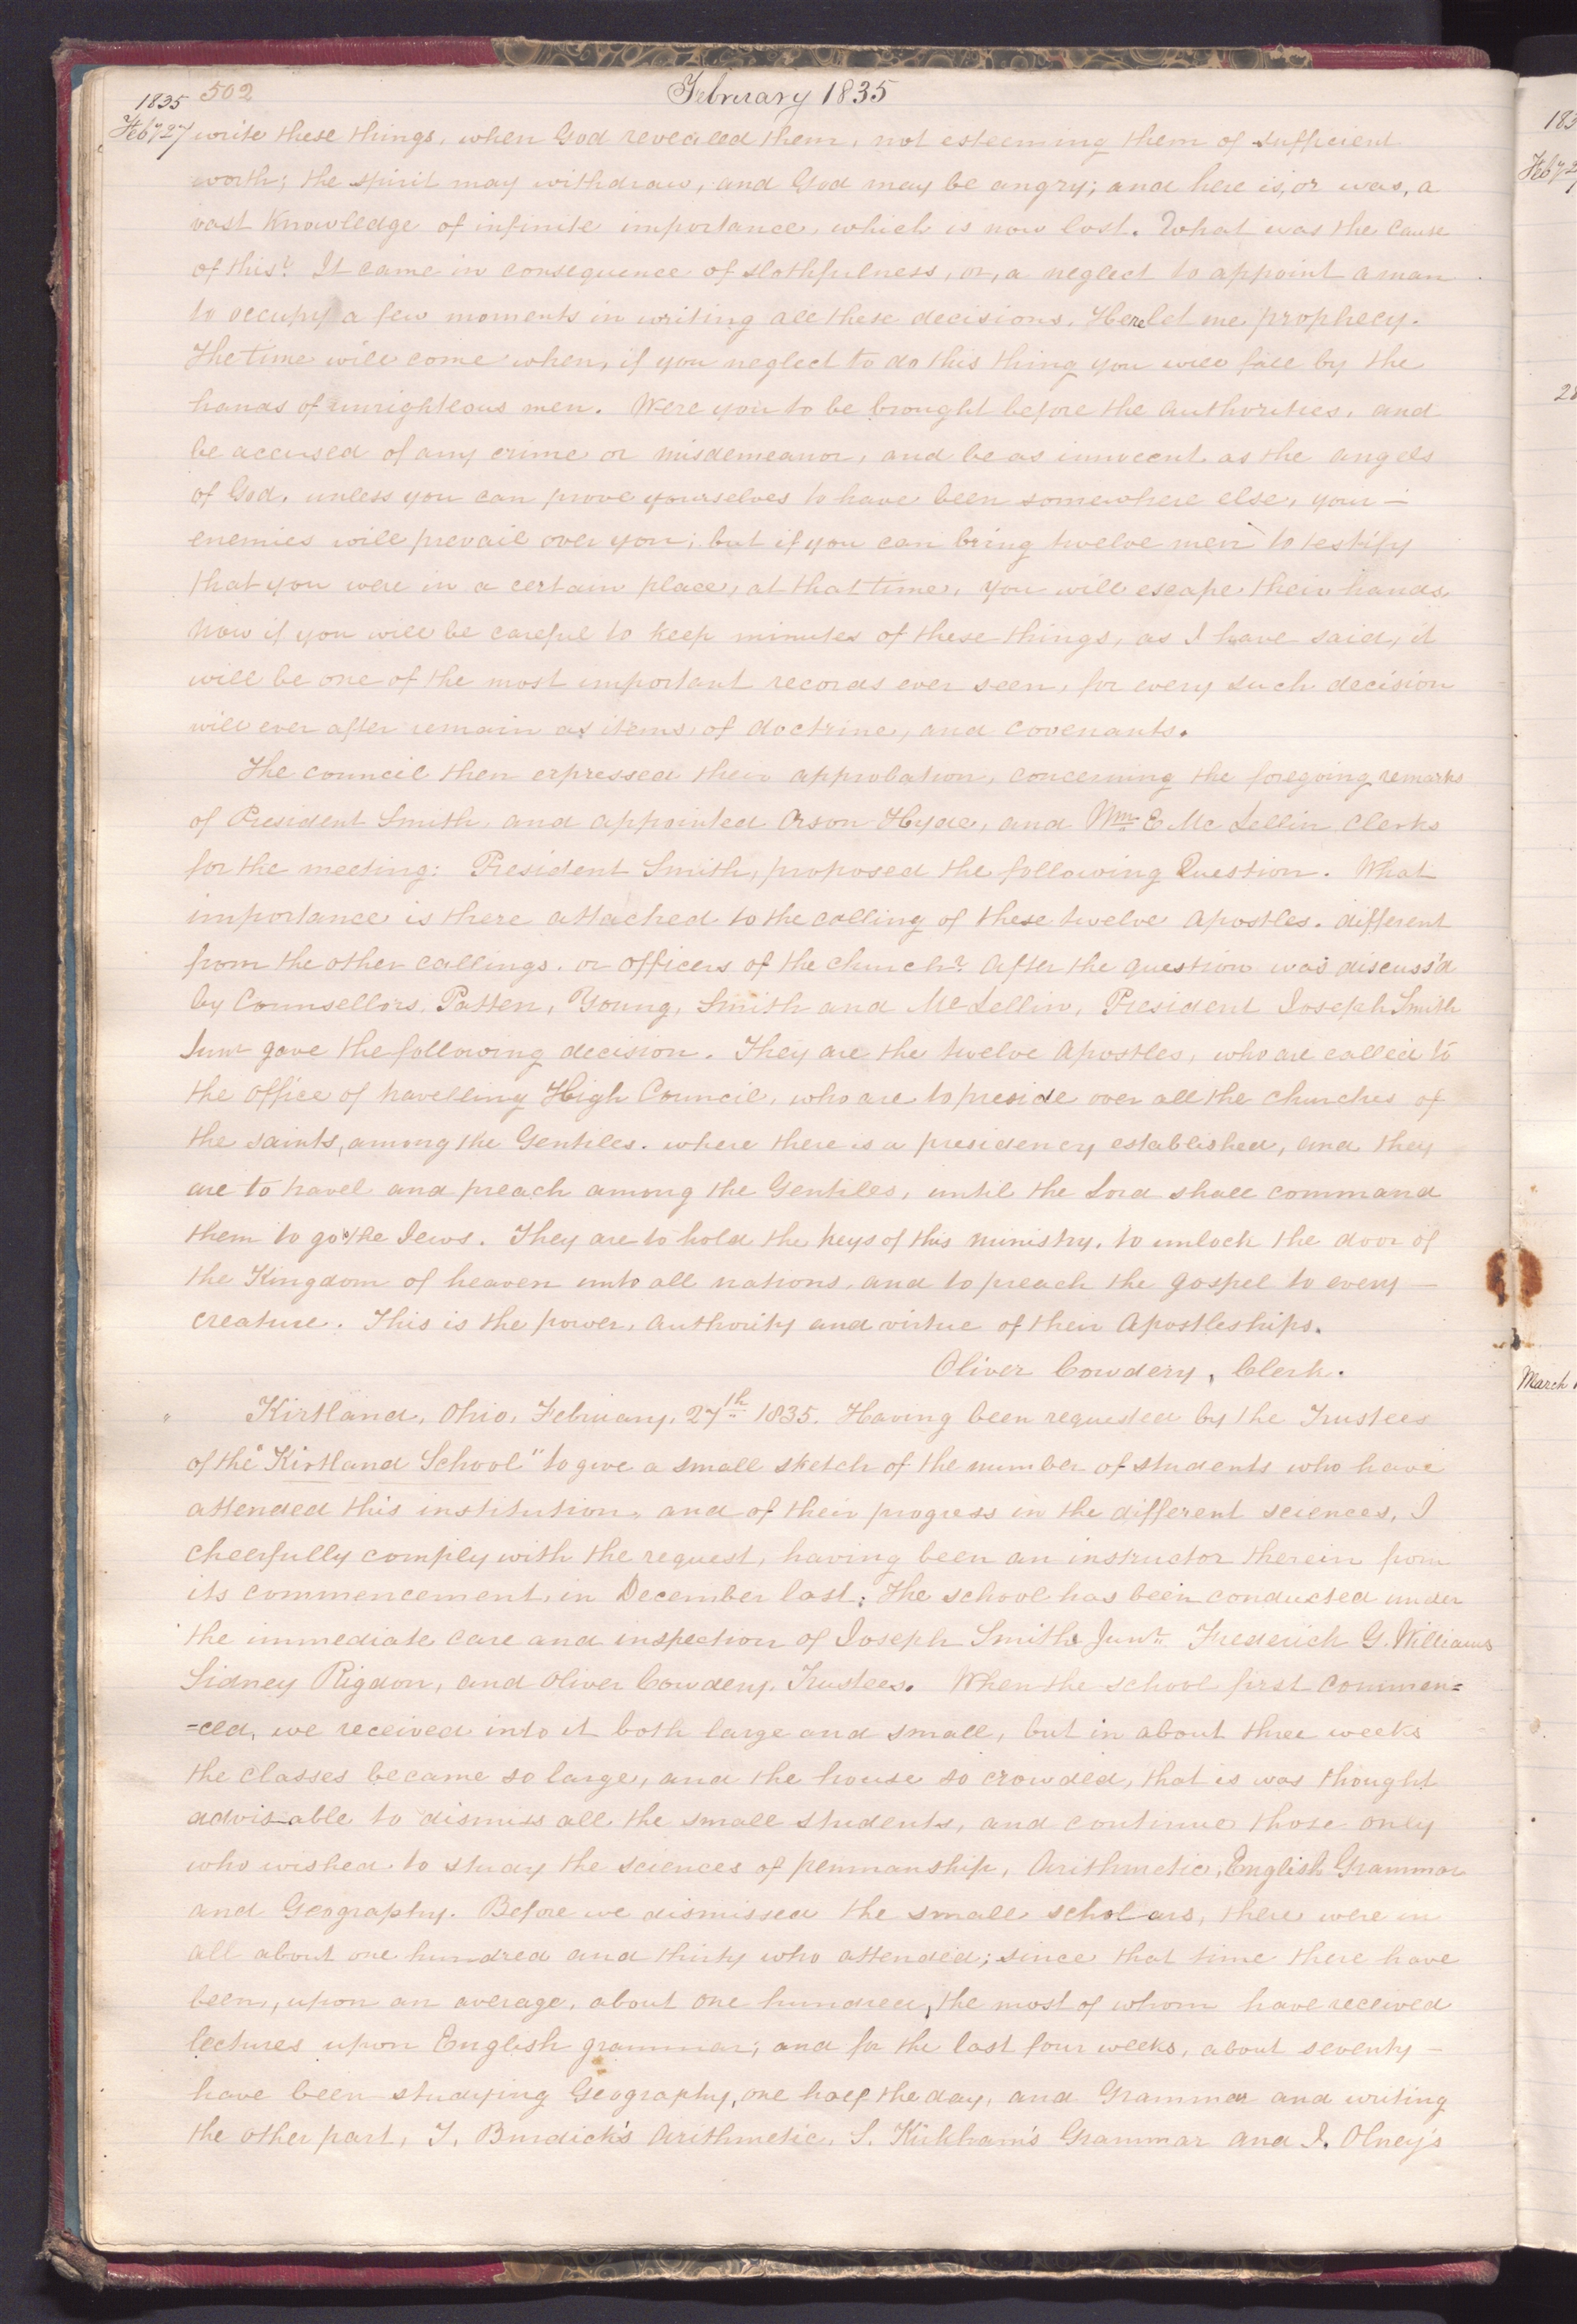 502
February 1835
1835
Feby 27 write these things, when God revealed them, not esteeming them of sufficient
worth; the spirit may withdraw, and God may be angry; and here is, or was, a
vast knowledge of infinite importance, which is now lost. What was the cause
of this? It came in consequence of slothfulness, or, a neglect to appoint a man
to occupy a few moments in writing all these decisions. Here let me prophecy.
The time will come when, if you neglect to do this thing you will fall by the
hands of unrighteous men. Were you to be brought before the authorities, and
be accused of any crime or misdemeanor, and be as innocent as the angels
of God, unless you can prove yourselves to have been somewhere else, your —
enemies will prevail over you; but if you can bring twelve men to testify
that you were in a certain place, at that time, you will escape their hands.
Now if you will be careful to keep minutes of these things, as I have said, it
will be one of the most important records ever seen, for every such decision
will ever after remain as items of doctrine, and covenants.
The council then expressed their approbation, concerning the foregoing remarks
of President Smith, and appointed Orson Hyde, and Wm. E. Mc Lellin Clerks
for the meeting: President Smith, proposed the following Question. What
importance is there attached to the calling of these twelve Apostles. different
from the other callings. or officers of the church? After the question was discuss'd
by Counsellors, Patten, Young, Smith and McLellin, President Joseph Smith
Junr gave the following decision. They are the twelve Apostles, who are called to
the office of travelling High Council, who are to preside over all the churches of
the saints, among the Gentiles. where there is a presidency established, and they
are to travel and preach among the Gentiles, until the Lord shall command
them to go to the Jews. They are to hold the keys of this ministry, to unlock the door of
the Kingdom of heaven unto all nations, and to preach the gospel to every —
creature. This is the power, authority and virtue of their Apostleships.
Oliver Cowdery, Clerk.
" Kirtland, Ohio, February, 27th 1835. Having been requested by the Trustees
of the "Kirtland School" to give a small sketch of the number of students who have
attended this institution, and of their progress in the different sciences, I
cheerfully comply with the request, having been an instructor therein from
its commencement, in December last; The school has been conducted under
the immediate care and inspection of Joseph Smith Junr. Frederick G. Williams
Sidney Rigdon, and Oliver Cowdery, Trustees. When the school first commen=
=ced, we received into it both large and small, but in about three weeks
the classes became so large, and the house so crowded, that is was thought
advisable to dismiss all the small students, and continue those only
who wished to study the sciences of penmanship, Arithmetic, English Grammar
and Geography. Before we dismissed the small scholars, there were in
all about one hundred and thirty who attended; since that time there have
been, upon an average, about one hundred, the most of whom have received
lectures upon English grammar; and for the last four weeks, about seventy —
have been studying Geography, one half the day, and Grammar and writing
the other part, T. Burdick's Arithmetic, S. Kirkham's Grammar and J. Olney's
183
Feby 2
28
March 1